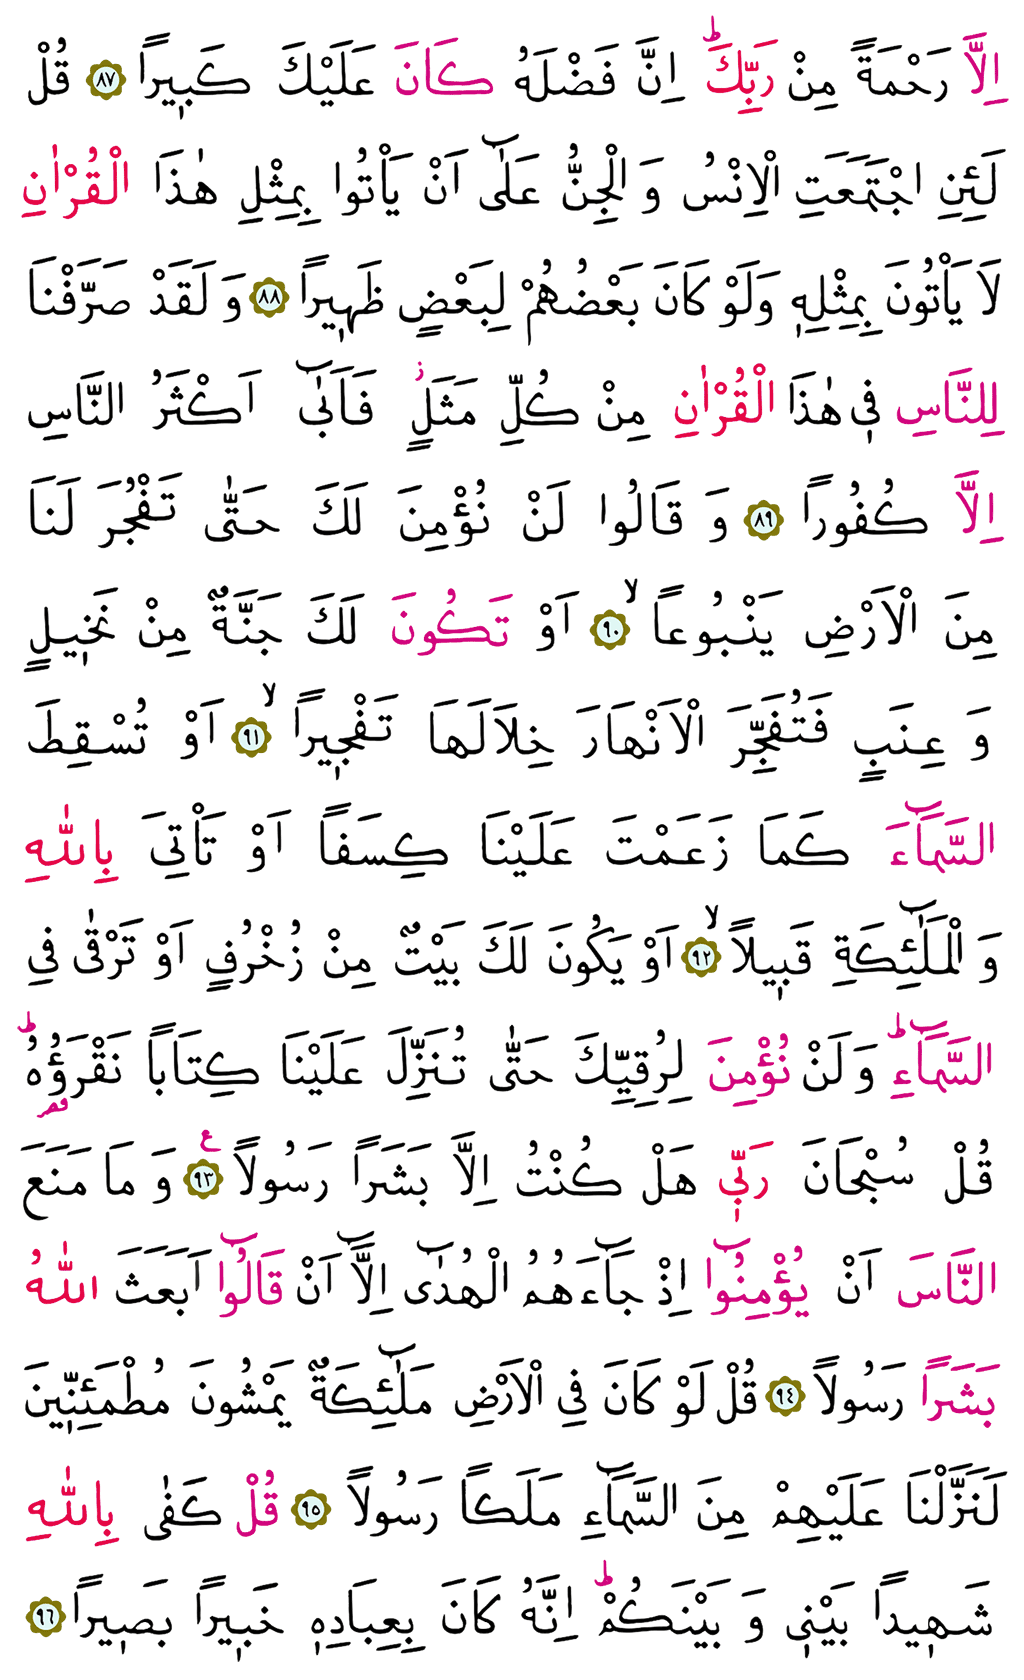 اِلَّا رَحْمَةً مِنْ رَبِّكَۜ اِنَّ فَضْلَهُ كَانَ عَلَيْكَ كَب۪يراً ﴿٨٧﴾ قُلْ
لَئِنِ اجْتَمَعَتِ الْاِنْسُ وَ الْجِنُّ عَلٰٓى اَنْ يَأْتُوا بِمِثْلِ هٰذَا الْقُرْاٰنِ
لَا يَأْتُونَ بِمِثْلِه۪ وَلَوْ كَانَ بَعْضُهُمْ لِبَعْضٍ ظَه۪يراً ﴿٨٨﴾ وَ لَقَدْ صَرَّفْنَا
لِلنَّاسِ ف۪ى هٰذَا الْقُرْاٰنِ مِنْ كُلِّ مَثَلٍۘ فَاَبٰٓى اَكْثَرُ النَّاسِ
اِلَّا كُفُوراً ﴿٨٩﴾ وَ قَالُوا لَنْ نُؤْمِنَ لَكَ حَتّٰى تَفْجُرَ لَنَا
مِنَ الْاَرْضِ يَنْبُوعاًۙ ﴿٩٠﴾ اَوْ تَكُونَ لَكَ جَنَّةٌ مِنْ نَخ۪يلٍ
وَ عِنَبٍ فَتُفَجِّرَ الْاَنْهَارَ خِلَالَهَا تَفْج۪يراًۙ ﴿٩١﴾ اَوْ تُسْقِطَ
السَّمَٓاءَ كَمَا زَعَمْتَ عَلَيْنَا كِسَفاً اَوْ تَأْتِىَ بِاللّٰهِ
وَ الْمَلٰٓئِكَةِ قَب۪يلاًۙ ﴿٩٢﴾ اَوْ يَكُونَ لَكَ بَيْتٌ مِنْ زُخْرُفٍ اَوْ تَرْقٰى فِى
السَّمَٓاءِۜ وَ لَنْ نُؤْمِنَ لِرُقِيِّكَ حَتّٰى تُنَزِّلَ عَلَيْنَا كِتَاباً نَقْرَؤُ۬هُۜ
قُلْ سُبْحَانَ رَبّ۪ى هَلْ كُنْتُ اِلَّا بَشَراً رَسُولاً۟ ﴿٩٣﴾ وَ مَا مَنَعَ
النَّاسَ اَنْ يُؤْمِنُٓوا اِذْ جَٓاءَهُمُ الْهُدٰٓى اِلَّٓا اَنْ قَالُٓوا اَبَعَثَ اللّٰهُ
بَشَراً رَسُولاً ﴿٩٤﴾ قُلْ لَوْ كَانَ فِى الْاَرْضِ مَلٰٓئِكَةٌ يَمْشُونَ مُطْمَئِنّ۪ينَ
لَنَزَّلْنَا عَلَيْهِمْ مِنَ السَّمَٓاءِ مَلَكاً رَسُولاً ﴿٩٥﴾ قُلْ كَفٰى بِاللّٰهِ
شَه۪يداً بَيْن۪ى وَ بَيْنَكُمْۜ اِنَّهُ كَانَ بِعِبَادِه۪ خَب۪يراً بَص۪يراً ﴿٩٦﴾